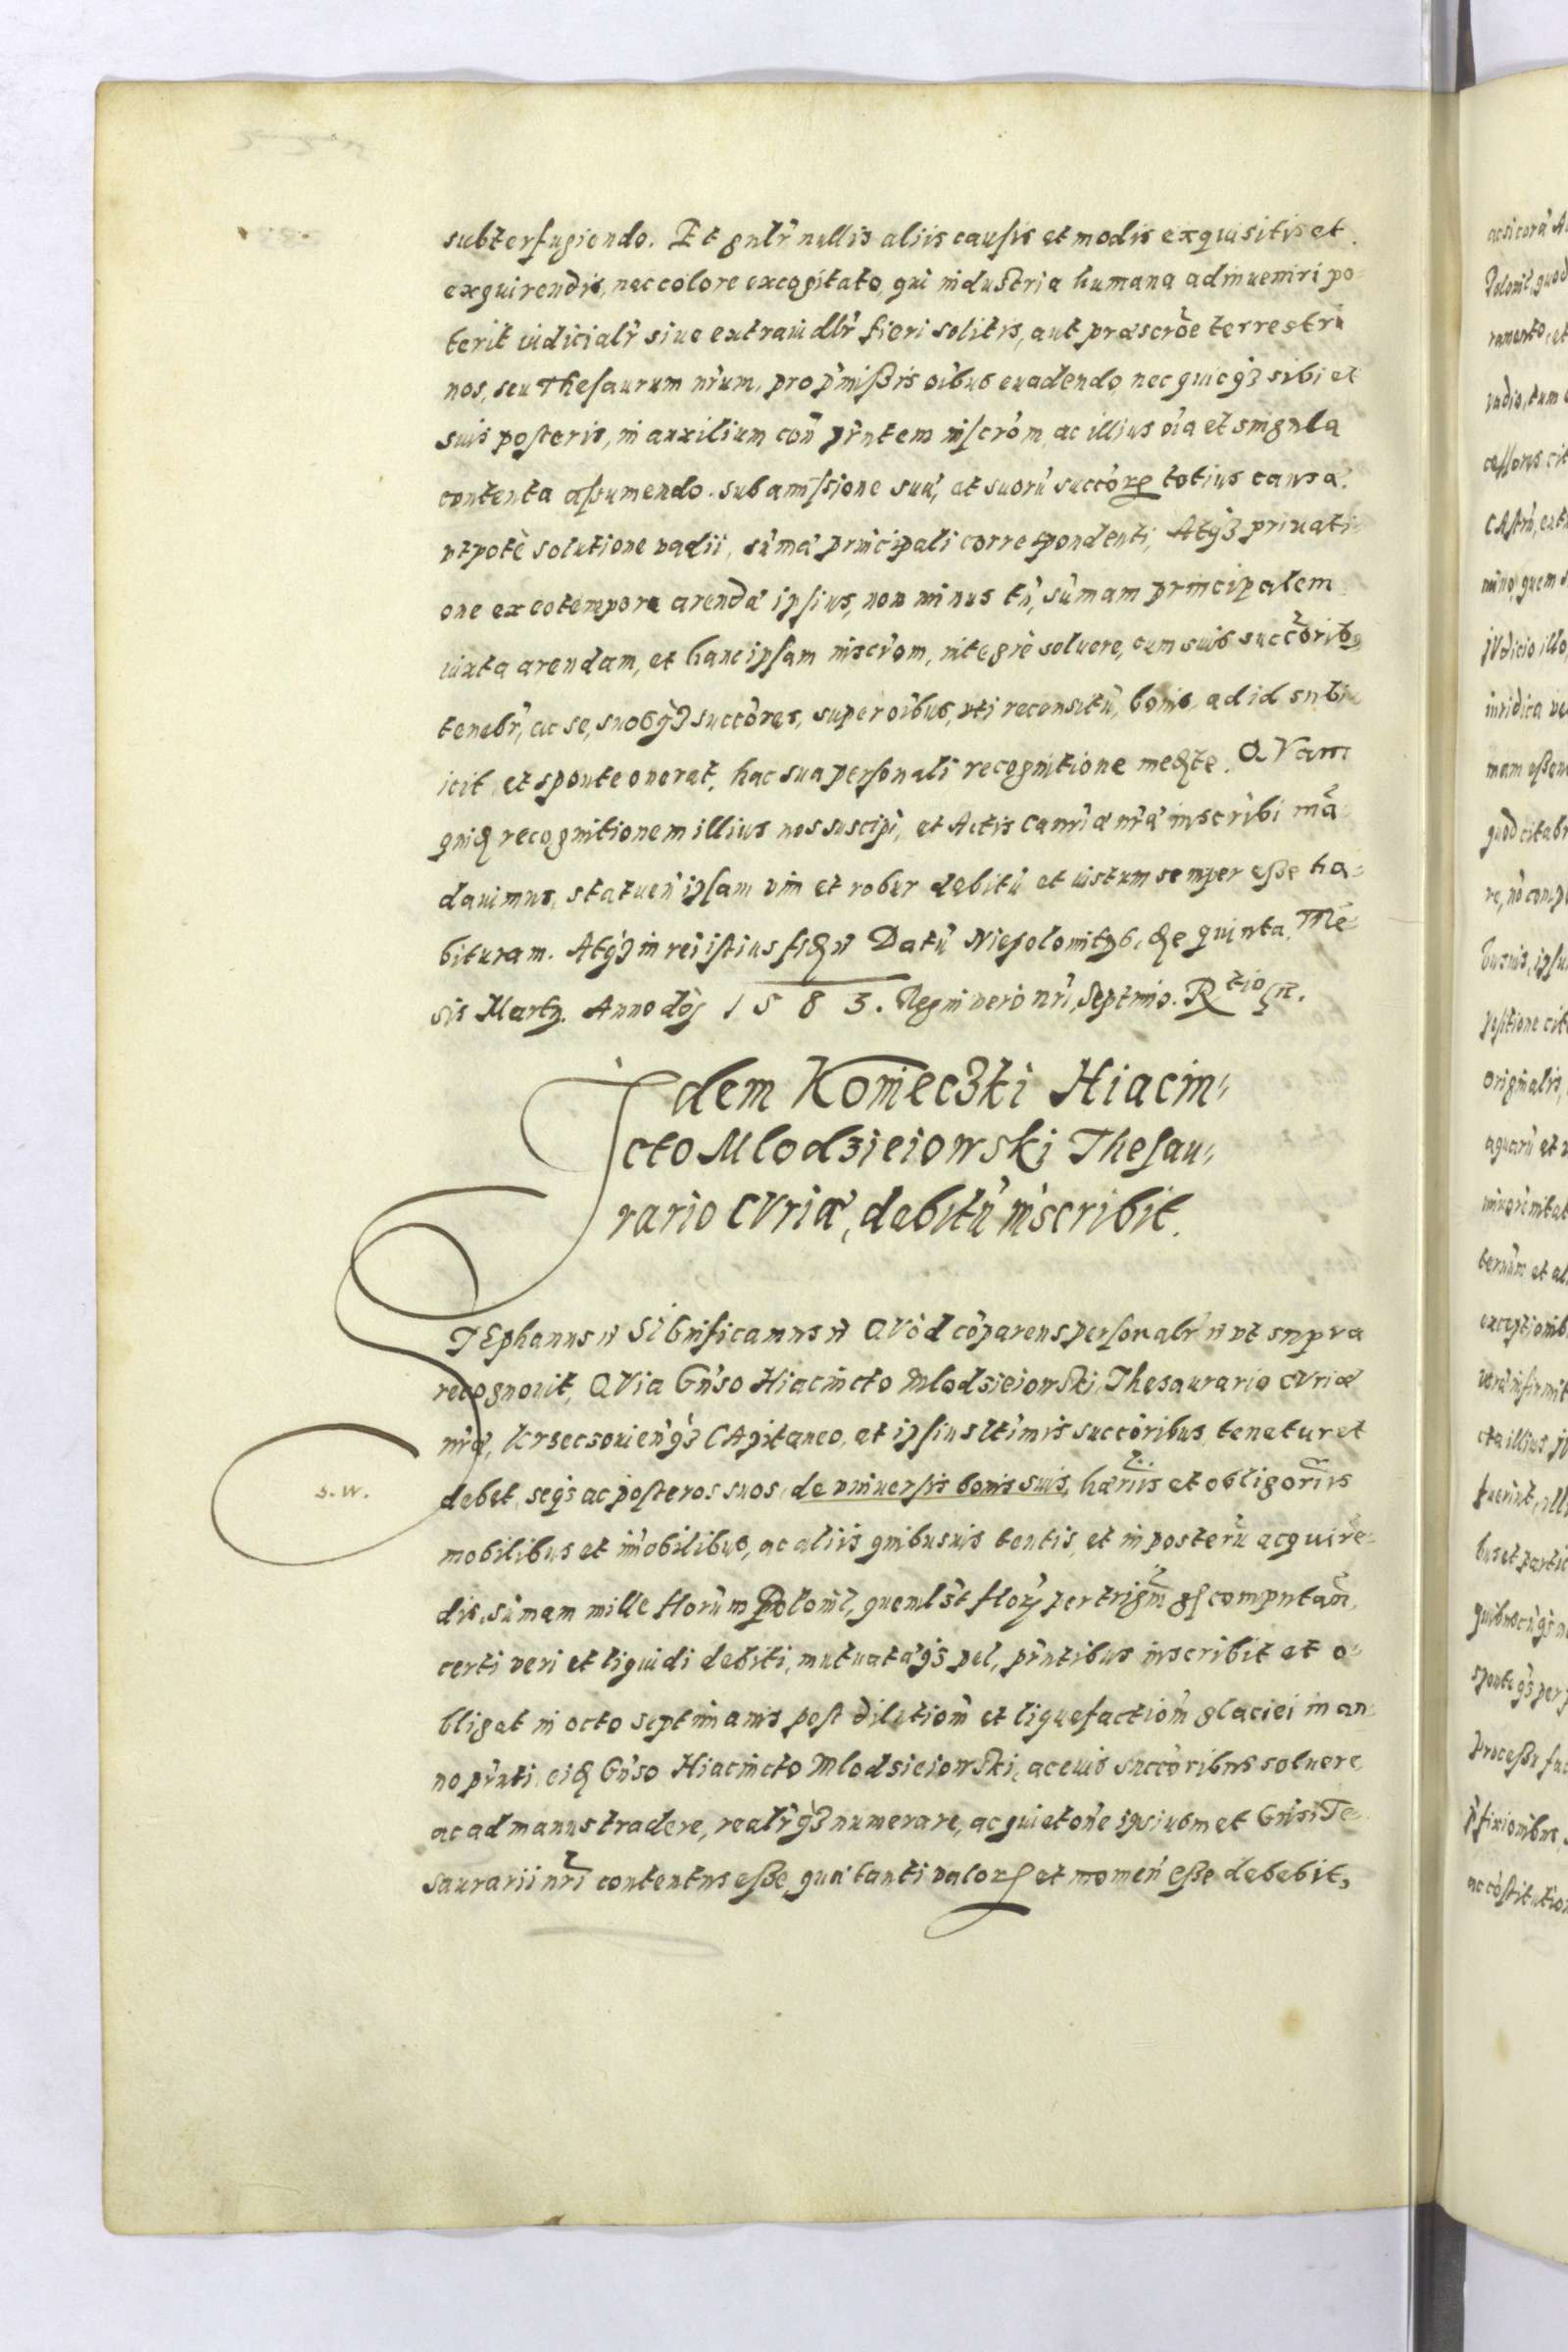 subterfugiendo. Et gnlr̃ nullis aliis causis et modis exquisitis et
exquirendis, nec colore excogitato, qui industria humana adinueniri po=
terit iudicialr̃ siue extraiudlr̃ fieri solitis, aut præscrõe terrestri
nos, seu Thesaurum nr̃um, pro p̃missis oĩbus euadendo, nec quicq̃ sibi et
suis posteris, in auxilium con̄ p̃ntem inscrõm, ac illius oĩa et singula
contenta assumendo. sub amissione suæ, et suorũ succõrꝝ totius causæ.
vtpotè solutione vadii, sũmæ principali correspondenti, Atqꝫ priuati=
one ex eo tempore arendæ ipsius, non minus tñ, sũmam principalem
iuxta arendam, et hanc ipsam inscrõm, integrè soluere, cum suis succõribꝫ
tenebr̃, ac se, suosqꝫ succõres, super oĩbus, vti recensitũ, bonis ad id subi=
icit, et sponte onerat, hac sua personali recognitione medte. QVam
quid recognitionem illius nos suscipi, et Actis Canr̃iæ nr̃æ inscribi mã=
dauimus, statuen̄ ipsam vim et robur debitũ et iustum semper esse ha=
bituram. Atqꝫ in rei istius fidē ñ Datũ Niepolomitꝫ, die quinta, Mẽ
sis Martij. Anno dñj 1583. Regni verò nr̃i, Septimo. Rtio St.
Idem Konieczki Hiacin=
cto Mlodzieiowski Thesau=
rario CVriæ, debitũ inscribit.
STEphanus ñ SiGnificamus ñ QVòd cõparens personalr̃ ñ vt supra
recognouit, QVia Gñso Hiacincto Mlodsieiowski, Thesaurario CVriæ
nr̃æ, Krsecsouien̄qꝫ CApitaneo, et ipsius ltĩmis succõribus, tenetur et
debet, seqꝫ ac posteros suos, de vniuersis bonis suis, hær̃iis et obligor̃iis
s. w.
mobilibus et im̃obilibus, ac aliis quibusuis tentis, et in posterũ acquirẽ=
dis, sũmam mille florũm Polonil, quemlꝫt flor̃ per trigñ gꝭ computan̄,
certi veri et liquidi debiti, mutuatæqꝫ pel, p̃ntibus inscribit et o=
bligat in octo septimanis post dilution̄ et liquefaction̄ glaciei in an=
no p̃nti, eid Gñso Hiacincto Mlodsieiowski, ac euis succõribus soluere
ac ad manus tradere, realr̃qꝫ numerare, ac quietõne ipsiusmet Gñsi Te=
saurarii nr̃i contentus esse, quæ tanti valorꝭ et momen̄ esse debebit,